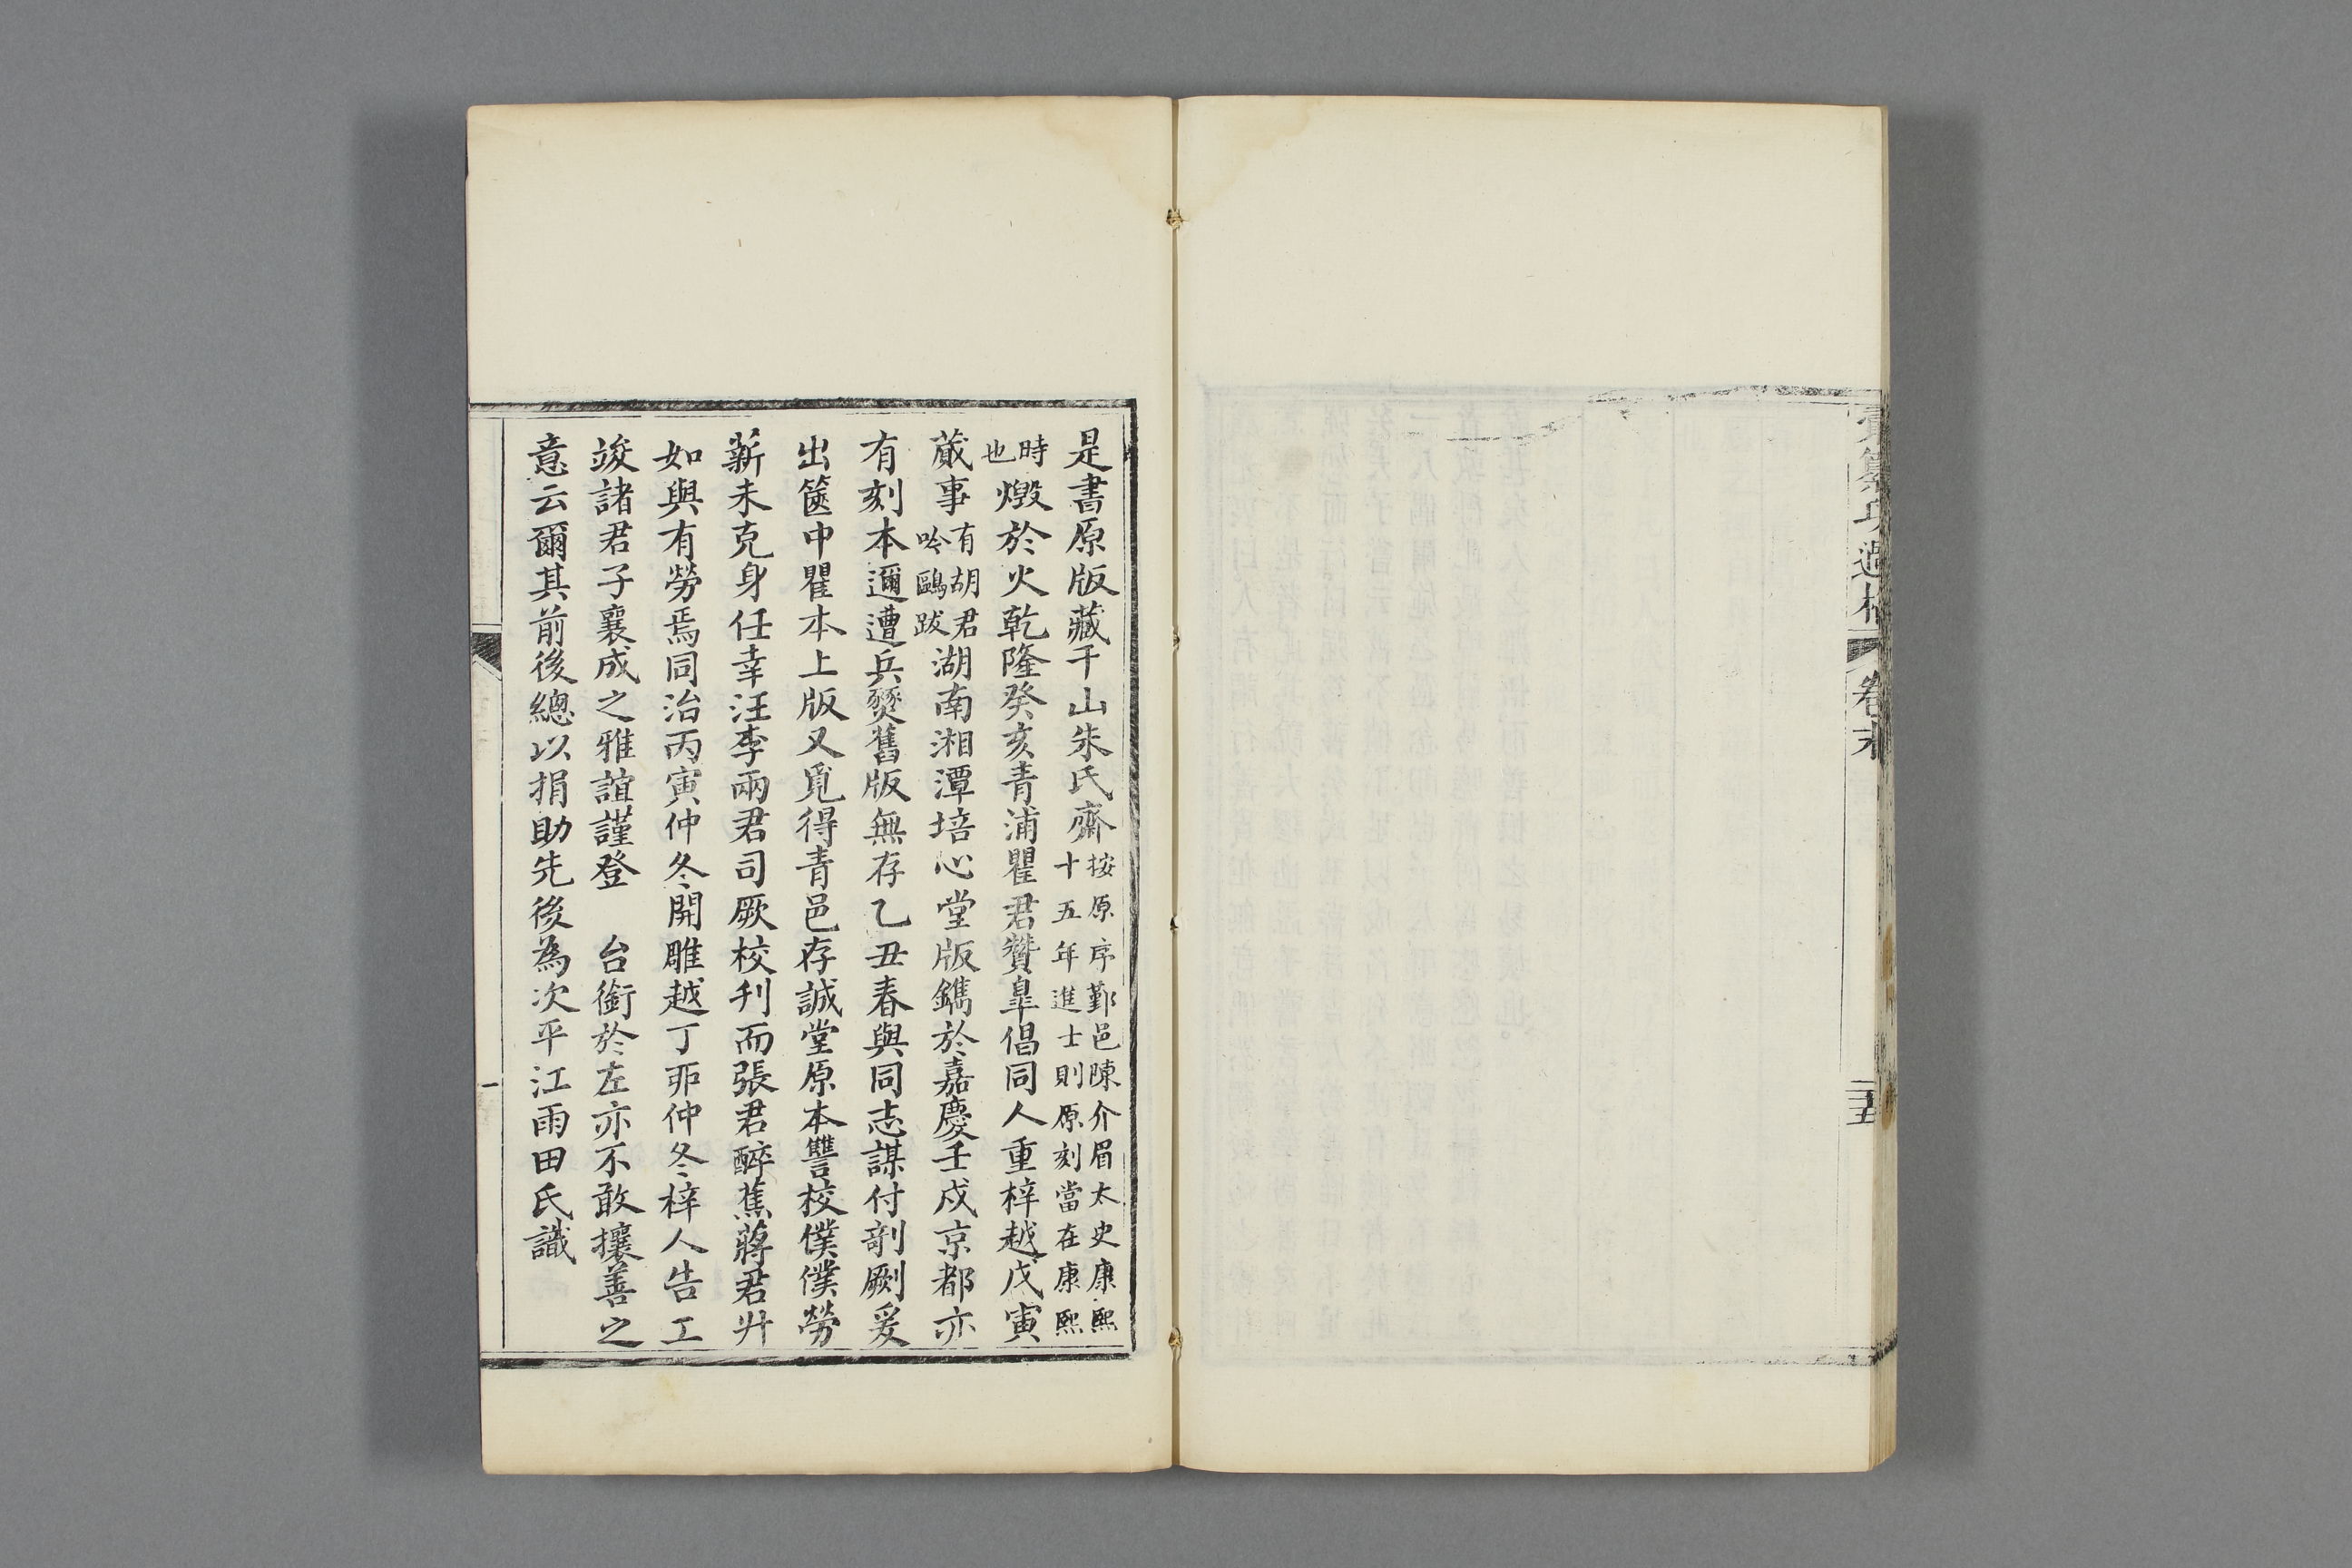 卷末
三十五
是書原版藏千山朱氏齋按原序鄞邑陳介眉太史康熙十五年進士則原刻當在康熙
時也燬於火乾隆癸亥青浦瞿君贊皐倡同人重梓越戊寅
蕆事有胡君吟鷗跋湖南湘潭培心堂版鐫於嘉慶壬戌京都亦
有刻本邇遭兵燹舊版無存乙丑春與同志謀付剞劂爰
出篋中瞿本上版又覓得青邑存誠堂原本讐校僕僕勞
薪未克身任幸汪李兩君司厥校刋而張君醉蕉蔣君廾
如與有勞焉同治丙寅仲冬開雕越丁丣仲冬梓人告工
竣諸君子襄成之雅誼謹登 台銜於左亦不敢攘善之
意云爾其前後總以捐助先後為次平江雨田氏識
一